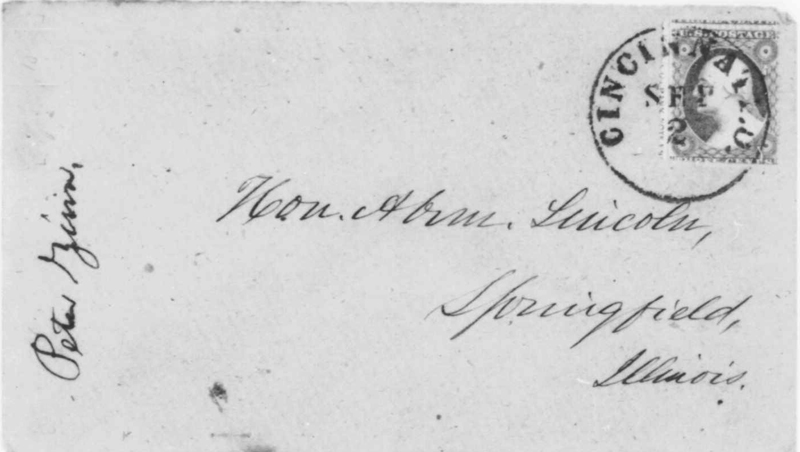 U.S. POSTAGE
CINCINNATI.O.
SEP
2
Hon. Abrm. Lincoln,
Springfield,
Illinois.
Peter Zinn.